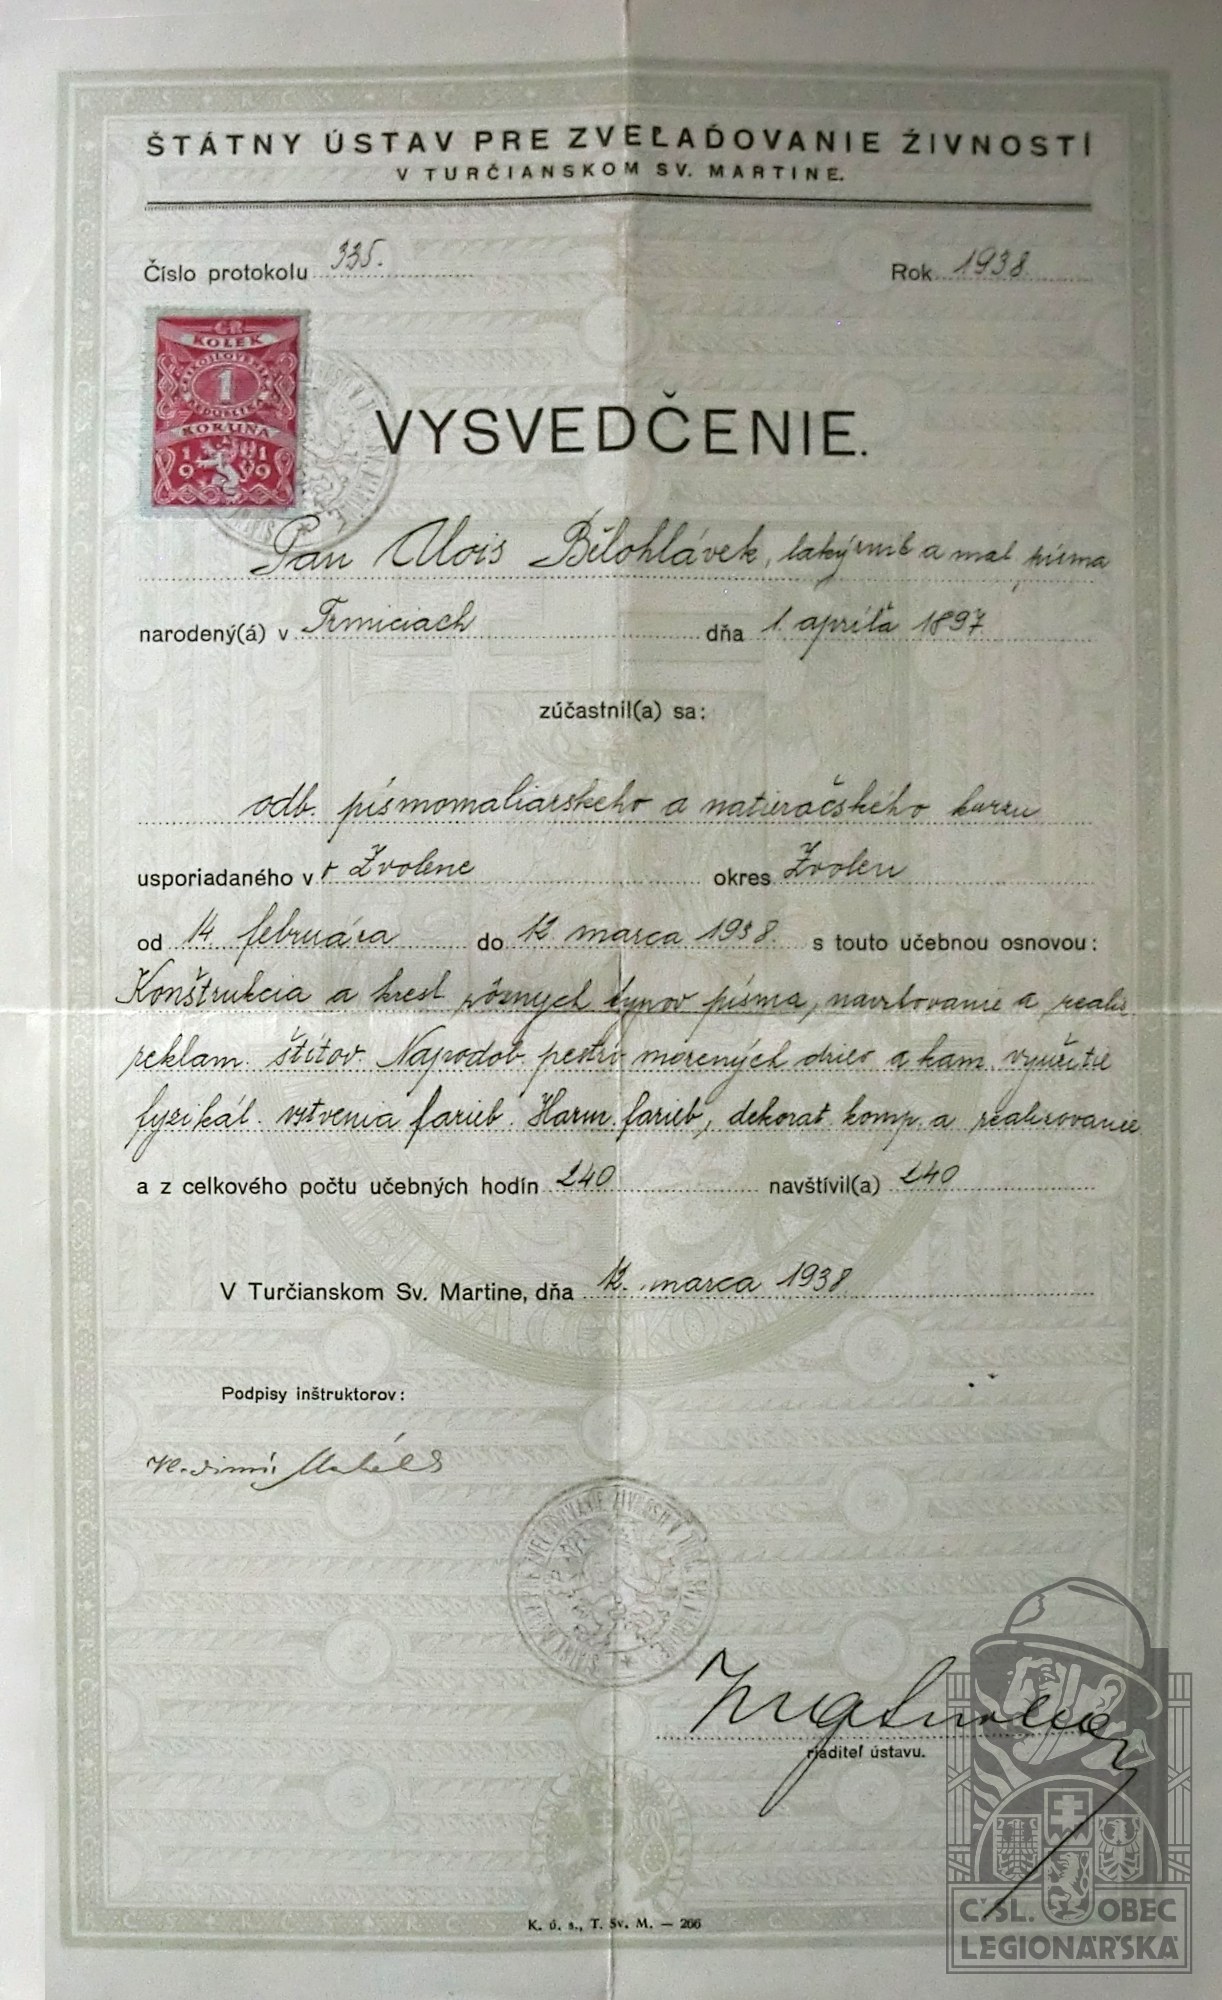 ŠTÁTNY ÚSTAV PRE ZVEĽAĎOVANIE ŽIVNOSTÍ
V TURČIANSKOM SV. MARTINE.
Číslo protokolu 335. Rok 1938
ČR
KOLEK
1
KORUNA
1919
VYSVEDČENIE.
Pan Alois Bělohlávek, lakýrník a mal písma
narodený(á) v Trmiciach dňa 1. apríla 1897
zúčastnil(a) sa:
odb. písmomaliarskeho a natieračského kurzu
usporiadaného v Zvolene okres Zvolen
od 14. februára do 12. marca 1938. s touto učebnou osnovou:
Konštrukcia a kresl rôznych typov písma, navrhovanie a realis.
reklam. štítov. Napodob. morených driev a kam. využitie
fyzikál. vrstvenia farieb. Harm. farieb, dekorat. komp. a realisovanie
a z celkového počtu učebných hodín 240 navštívil(a) 240
V Turčianskom Sv. Martine, dňa 12. marca 1938
Podpisy inštruktorov:
riaditeľ ústavu.
K. ú. s., T. Sv. M. — 266
ČSL. OBEC
LEGIONÁŘSKÁ